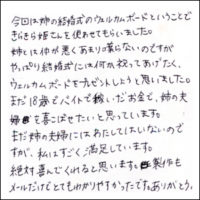 今回は姉の結婚式のウェルカムボードということで
きらきら姫さんを使わせてもらいました。
姉とは仲が悪くあまり喋らないのですが
やっぱり結婚式には何か祝ってあげたく、
ウェルカムボードをプレゼントしようと思いました。
まだ18歳でバイトで稼いだお金で、姉の夫
婦を喜こばせたいと思っています。
まだ姉の夫婦にはあたしてはいないので
すが、私はすごく満足しています。
絶対喜んでくれると思います。製作も
メールだけでとてもわかりやすかったです。ありがとう。